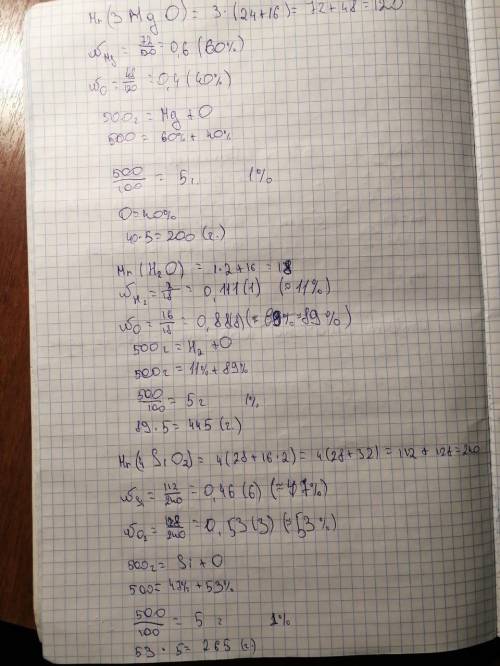 Mr(3MgO) = 3·(24+16) = 72+48 = 120
wMg = 72/120 = 0,6 (60%)
wO = 48/120 = 0,4 (40%)
500г = Mg + O
500 = 60% + 40%
500/100 = 5г 1%
O=40%
40·5=200 (г.)
Mr(H₂O) = 1·2+16 = 18
wH₂ = 2/18 = 0,111(1) (≈11%)
wO = 16/18 = 0,888(≈ 89%=89%)
500г = H₂ + O
500г = 11% + 89%
500/100 = 5г 1%
89·5 = 445 (г.)
Mr(4SiO₂) = 4(28+16·2) = 4(28+32) = 112+128=240
wSi = 112/240 = 0,46(6) (≈47%)
wO₂ = 128/240 = 0,53(3) (≈53%)
500г = Si + O
500 = 47% + 53%
500/100 = 5г 1%
53·5 = 265 (г)